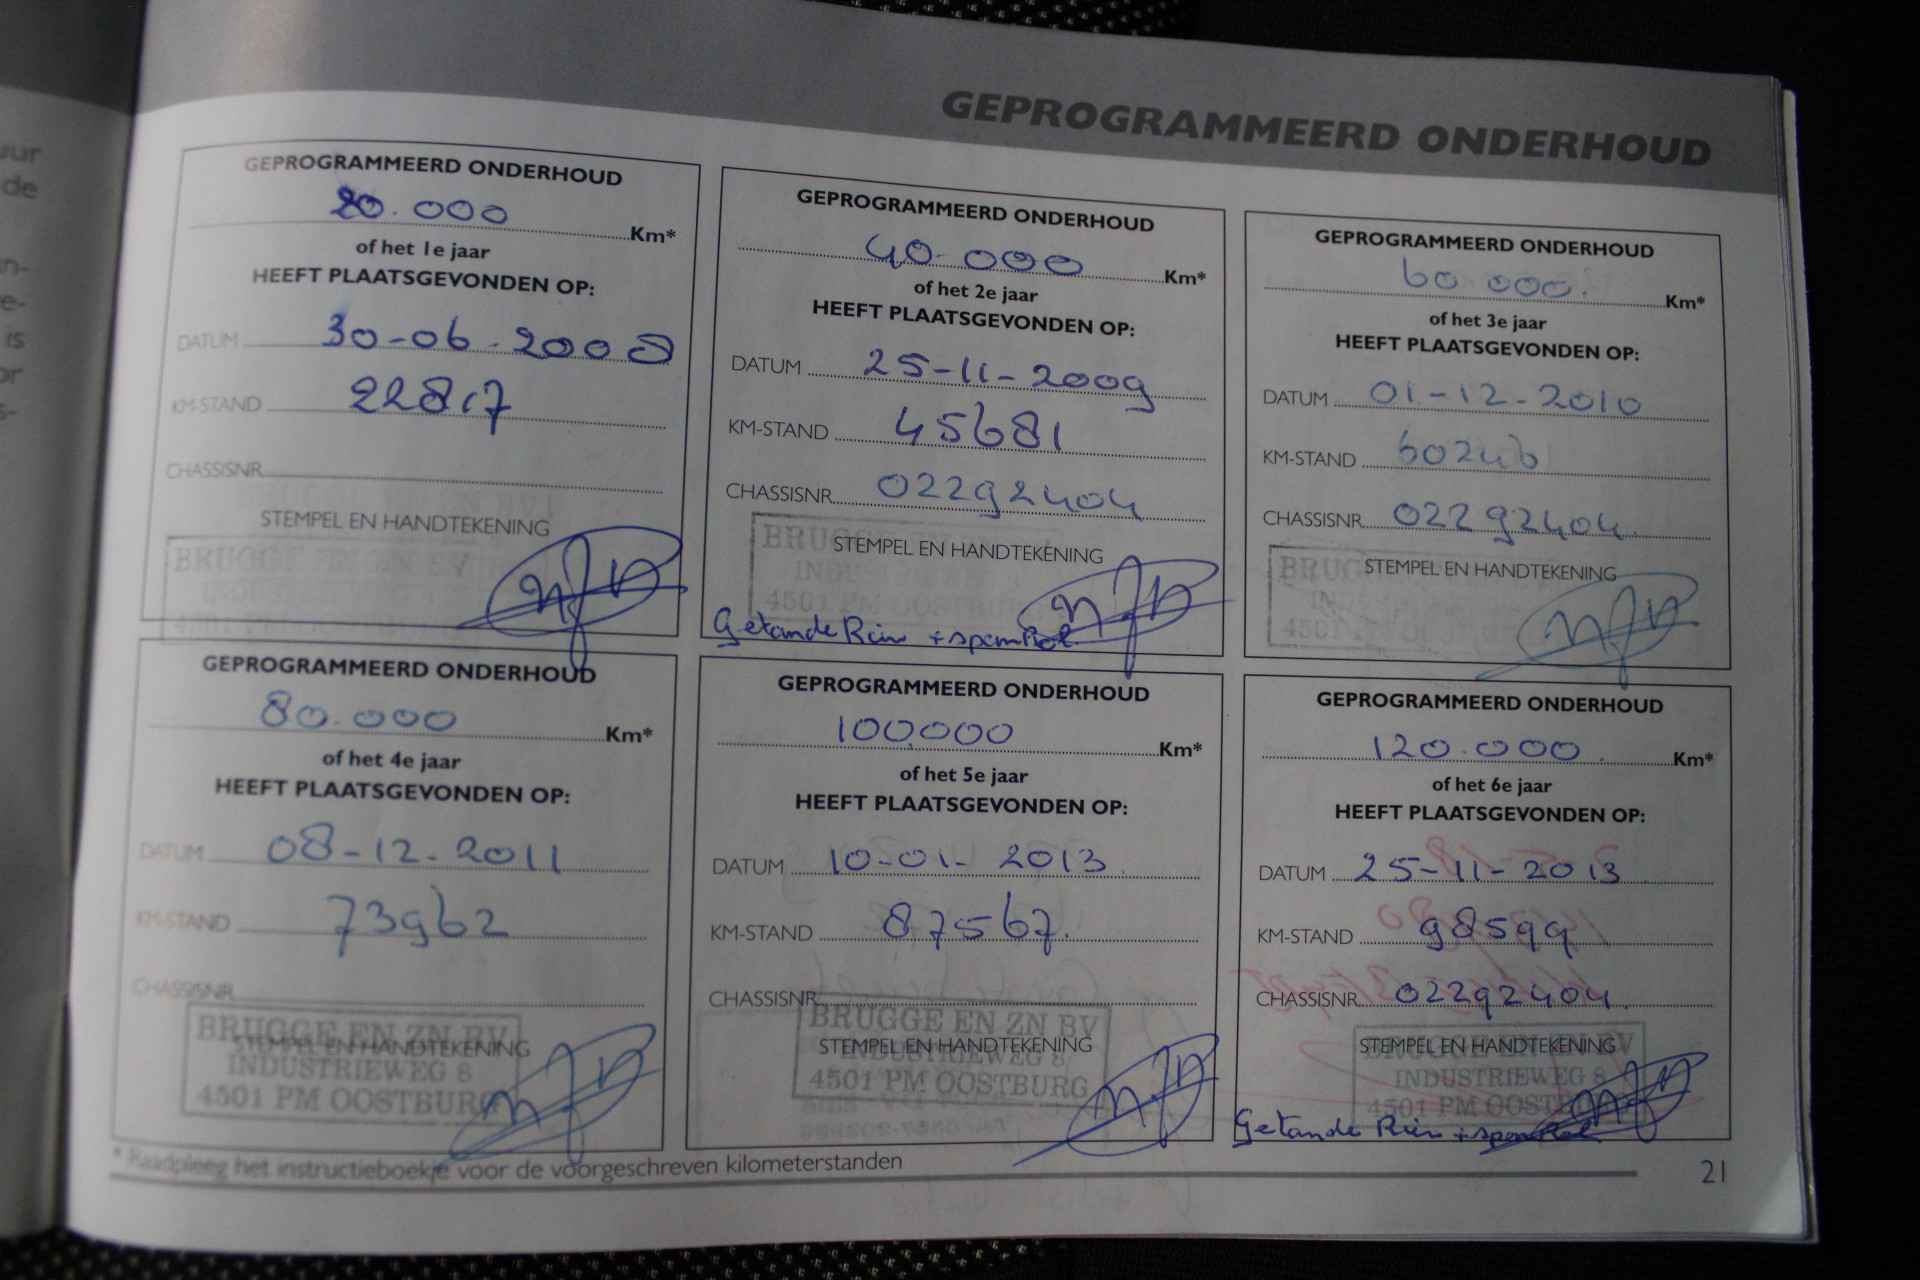 uur
de
n-
e-
is
or
s-
GEPROGRAMMEERD ONDERHOUD
GEPROGRAMMEERD ONDERHOUD
20.000 Km*
of het 1e jaar
HEEFT PLAATSGEVONDEN OP:
DATUM 30-06-2008
KM-STAND 22817
CHASSISNR.
STEMPEL EN HANDTEKENING
BRUGGE EN ZN BV
4501 PM
GEPROGRAMMEERD ONDERHOUD
40.000 Km*
of het 2e jaar
HEEFT PLAATSGEVONDEN OP:
DATUM 25-11-2009
KM-STAND 45681
CHASSISNR. 02292404
STEMPEL EN HANDTEKENING
BRUGGE
4501 PM OOSTBURG
Getande Riem + spanRol
GEPROGRAMMEERD ONDERHOUD
60.000. Km*
of het 3e jaar
HEEFT PLAATSGEVONDEN OP:
DATUM 01-12-2010
KM-STAND 60246
CHASSISNR. 02292404.
STEMPEL EN HANDTEKENING
4501 PM
GEPROGRAMMEERD ONDERHOUD
80.000 Km*
of het 4e jaar
HEEFT PLAATSGEVONDEN OP:
DATUM 08-12-2011
KM-STAND 73962
CHASSISNR.
BRUGGE EN ZN BV
STEMPEL EN HANDTEKENING
INDUSTRIEWEG 8
4501 PM OOSTBURG
GEPROGRAMMEERD ONDERHOUD
100.000 Km*
of het 5e jaar
HEEFT PLAATSGEVONDEN OP:
DATUM 10-01-2013
KM-STAND 87567.
CHASSISNR.
BRUGGE EN ZN BV
STEMPEL EN HANDTEKENING
INDUSTRIEWEG 8
4501 PM OOSTBURG
GEPROGRAMMEERD ONDERHOUD
120.000. Km*
of het 6e jaar
HEEFT PLAATSGEVONDEN OP:
DATUM 25-11-2013
KM-STAND 98599
CHASSISNR. 02292404.
BRUGGE EN ZN BV
STEMPEL EN HANDTEKENING
INDUSTRIEWEG 8
4501 PM OOSTBURG
Getande Riem + spanRol
* Raadpleeg het instructieboekje voor de voorgeschreven kilometerstanden
21